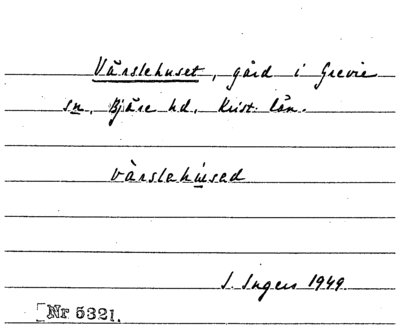 Vårslehuset, gård i Grevie
sn, Bjäre hd, Krist. län.
vàrslehúsed
I. Ingers 1949
Nr 5321.